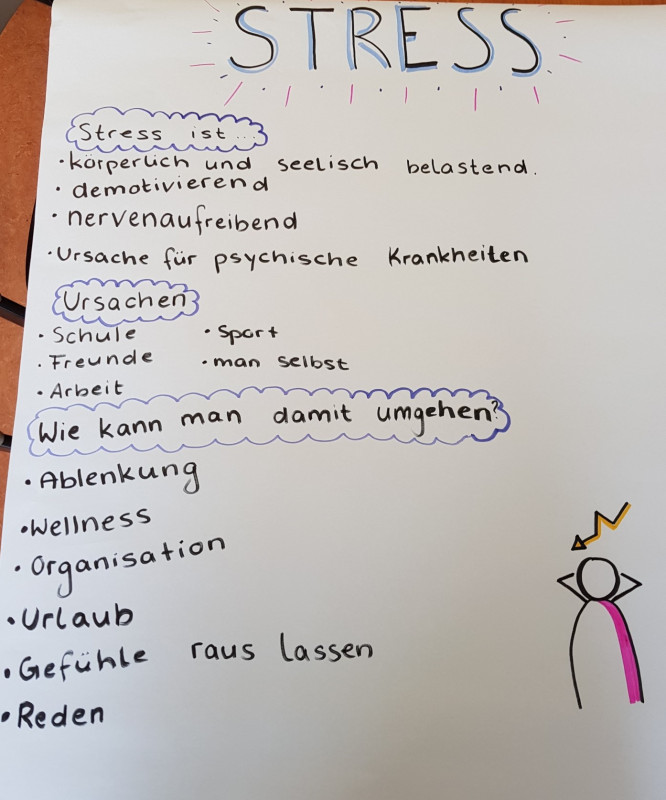 STRESS
Stress ist...
• körperlich und seelisch belastend.
• demotivierend
• nervenaufreibend
• Ursache für psychische Krankheiten
Ursachen
• Schule • Sport
• Freunde • man selbst
• Arbeit
Wie kann man damit umgehen?
• Ablenkung
• Wellness
• Organisation
• Urlaub
• Gefühle raus lassen
• Reden